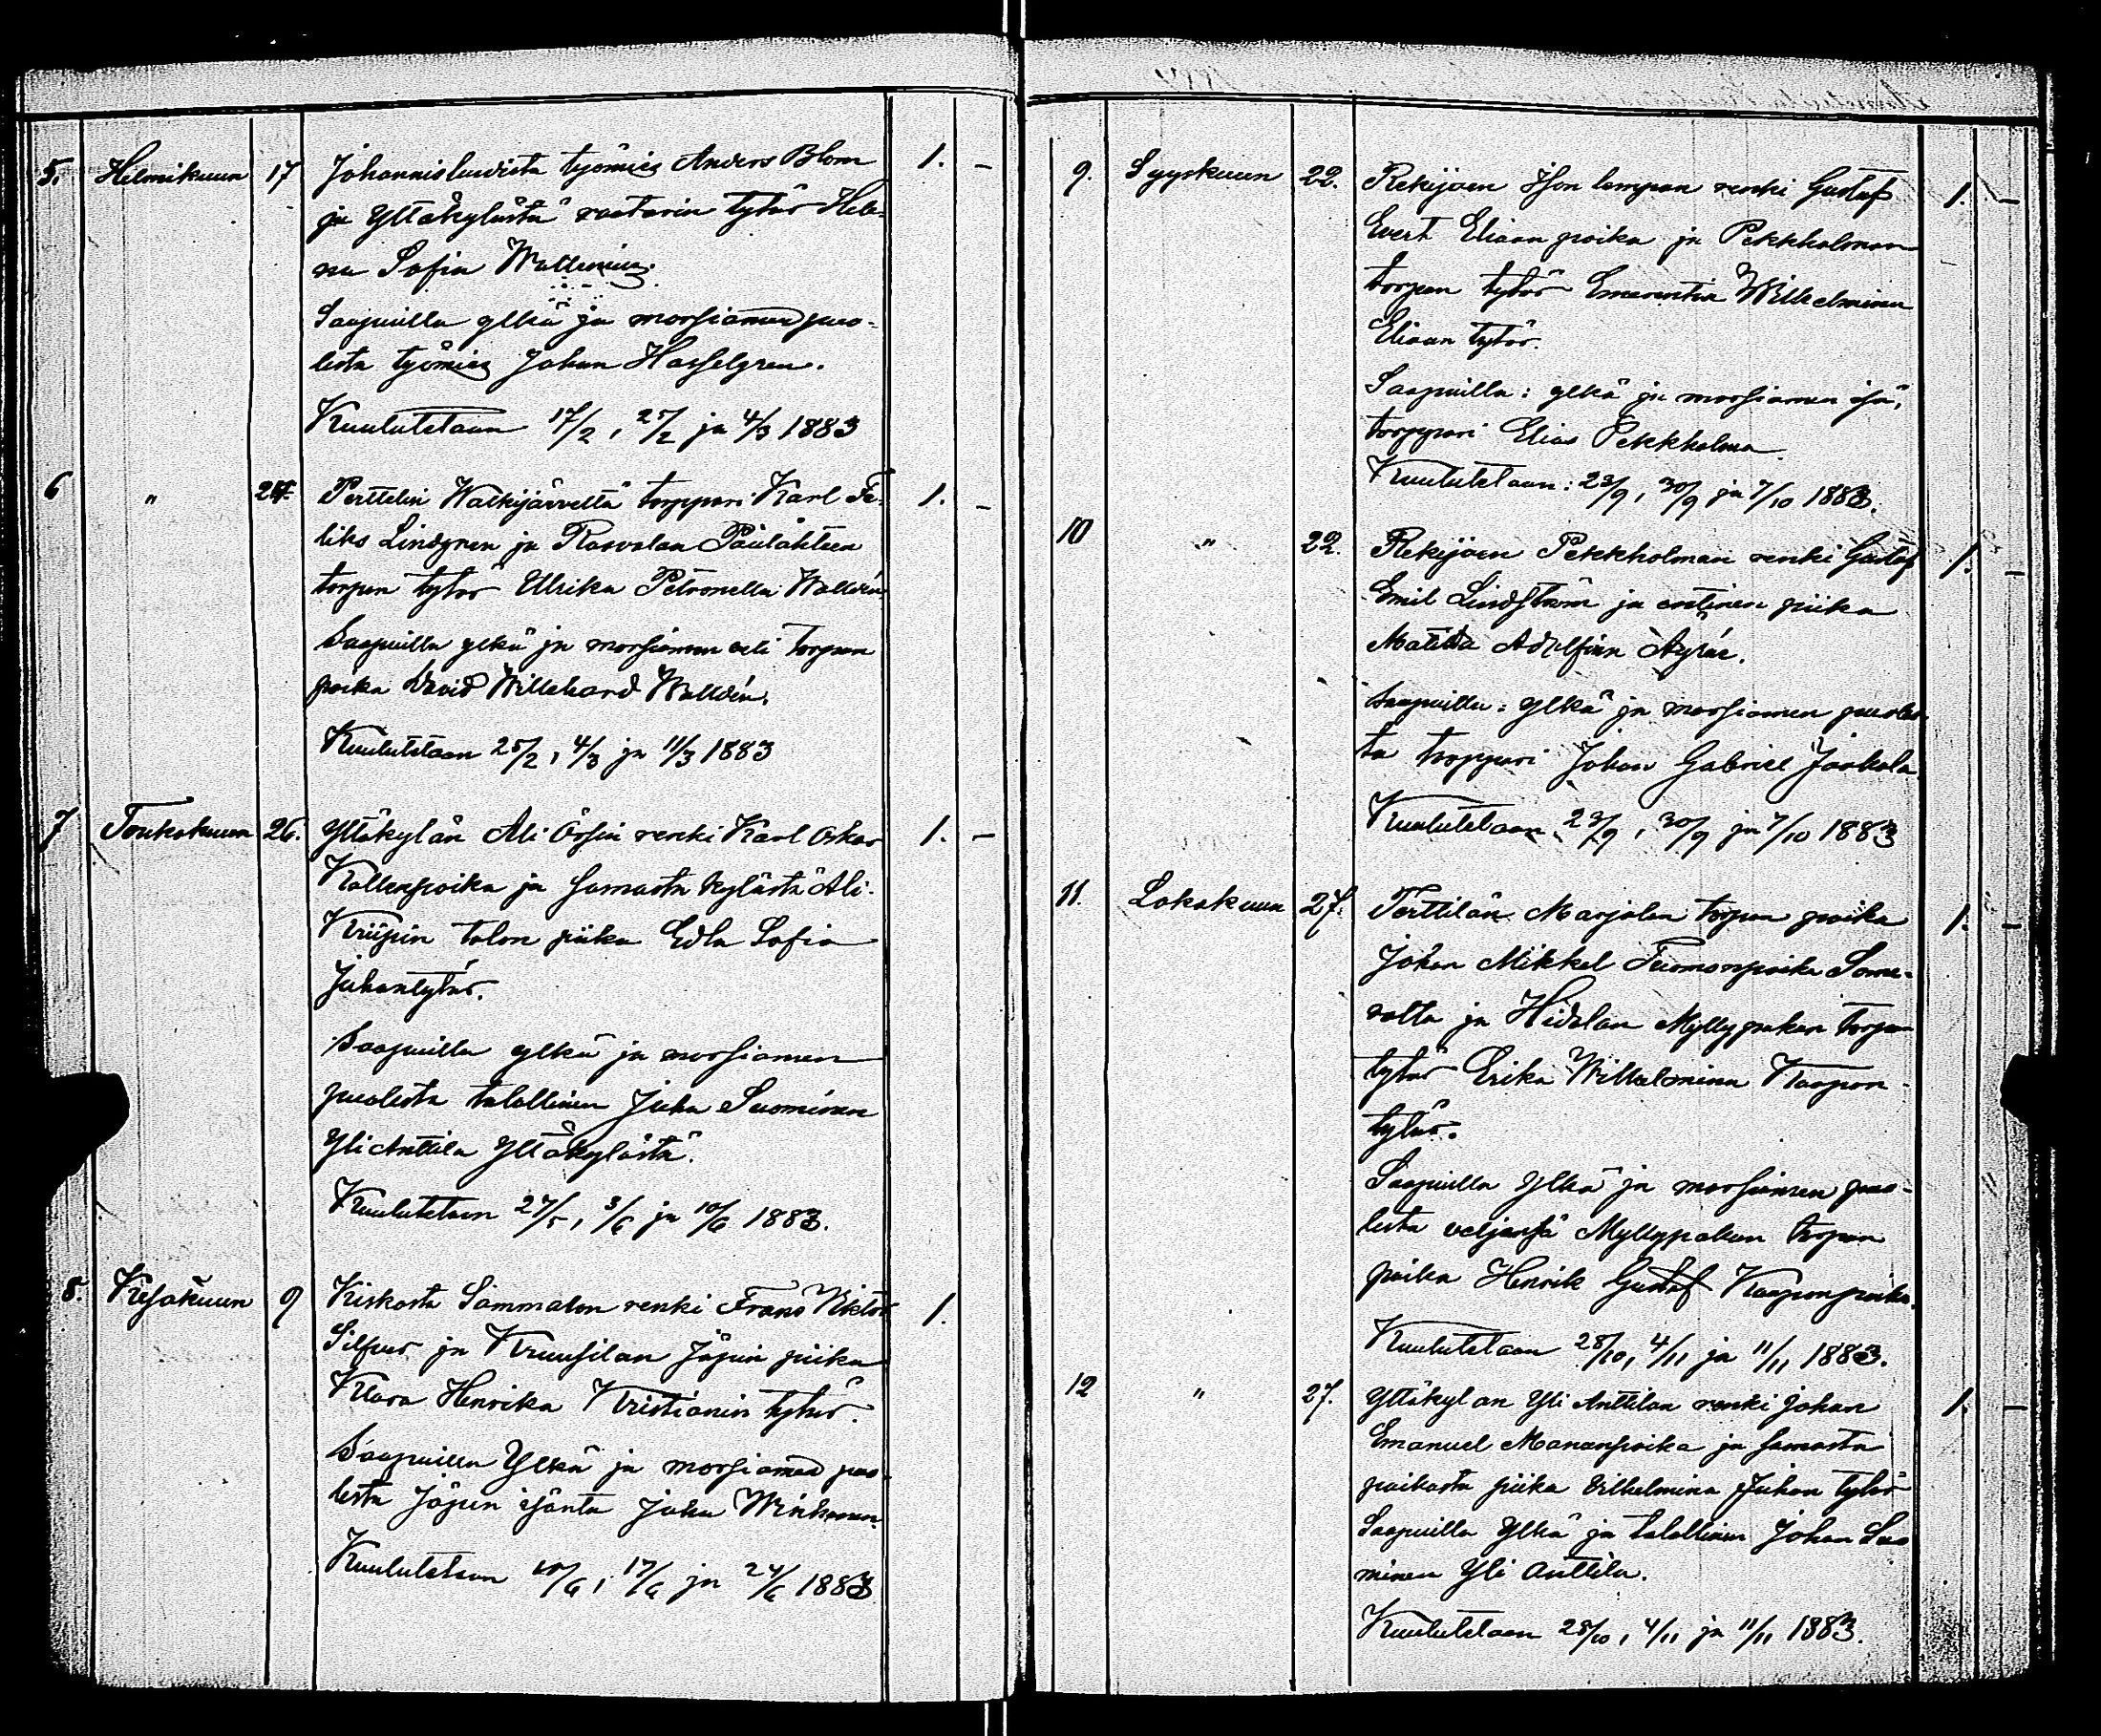 5. Helmikuun 17 Johannislundista työmies Anders Blom 1. –
ja Yltäkylästä raatarin tytär Hele-
na Sofia Wallenius.
Saapuilla ylkä ja morsiamen puo-
lesta työmies Johan Hasselgren.
Kuulutetaan 17/2, 25/2 ja 4/3 1883
6 " 24. Perttelin Walkijärveltä torppari Karl Fe- 1. –
liks Lindgren ja Rasvalan
torpan tytär Ulrika Petronella Walldén.
Saapuilla ylkä ja morsiamen veli torpan
poika David Willehard Walldén.
Kuulutetaan 25/2, 4/3 ja 11/3 1883
7 Toukokuun 26. Yltäkylän Ali Örsin renki Karl Oskar 1. –
Kallenpoika ja samasta kylästä Ali-
Kriipin talon piika Edla Sofia
Juhantytär.
Saapuilla ylkä ja morsiamen
puolesta talollinen Juha Suominen
Yli Anttila Yltäkylästä.
Kuulutetaan 27/5, 3/6 ja 10/6 1883.
8. Kesäkuun 9 Kiskosta Sammalon renki Frans Viktor 1.
Silfver ja Kruusilan Jäpin piika
Klara Henrika Kristianin tytär.
Saapuilla Ylkä ja morsiamen puo-
lesta Jäpin isäntä Juha
Kuulutetaan 10/6, 17/6 ja 24/6 1883
9. Syyskuun 22. Rekijoen renki Gustaf 1. –
Evert Eliaan poika ja Pekkholman
torpan tytär Emerentia Wilhelmina
Eliaan tytär.
Saapuilla: ylkä ja morsiamen isä,
torppari Elias Pekkholma.
Kuulutetaan: 23/9, 30/9 ja 7/10 1883.
10 " 22. Rekijoen Pekkholman renki Gustaf 1. –
Emil Lindström ja entinen piika
Matilda Adolfiina
Saapuilla: ylkä ja morsiamen puoles-
ta torppari Johan Gabriel Jaakola.
Kuulutetaan 23/9, 30/9 ja 7/10 1883
11. Lokakuun 27. Terttilän Marjalan torpan poika 1. –
Johan Mikkel Tuomonpoika Some-
rolta ja Hidolan Myllypakan torpan
tytär Erika Wilhelmina Kaapon-
tytär.
Saapuilla Ylkä ja morsiamen puo-
lesta veljensä Myllypakan torpan
poika Henrik Gustaf Kaaponpoika.
Kuulutetaan 28/10, 4/11 ja 11/11 1883.
12 " 27. Yltäkylän Yli Anttilan renki Johan 1. –
Emanuel Manasnpoika ja samasta
paikasta piika Vilhelmina Juhan tytär
Saapuilla Ylkä ja talollinen Johan Suo
minen Yli Anttila.
Kuulutetaan 28/10, 4/11 ja 11/11 1883.